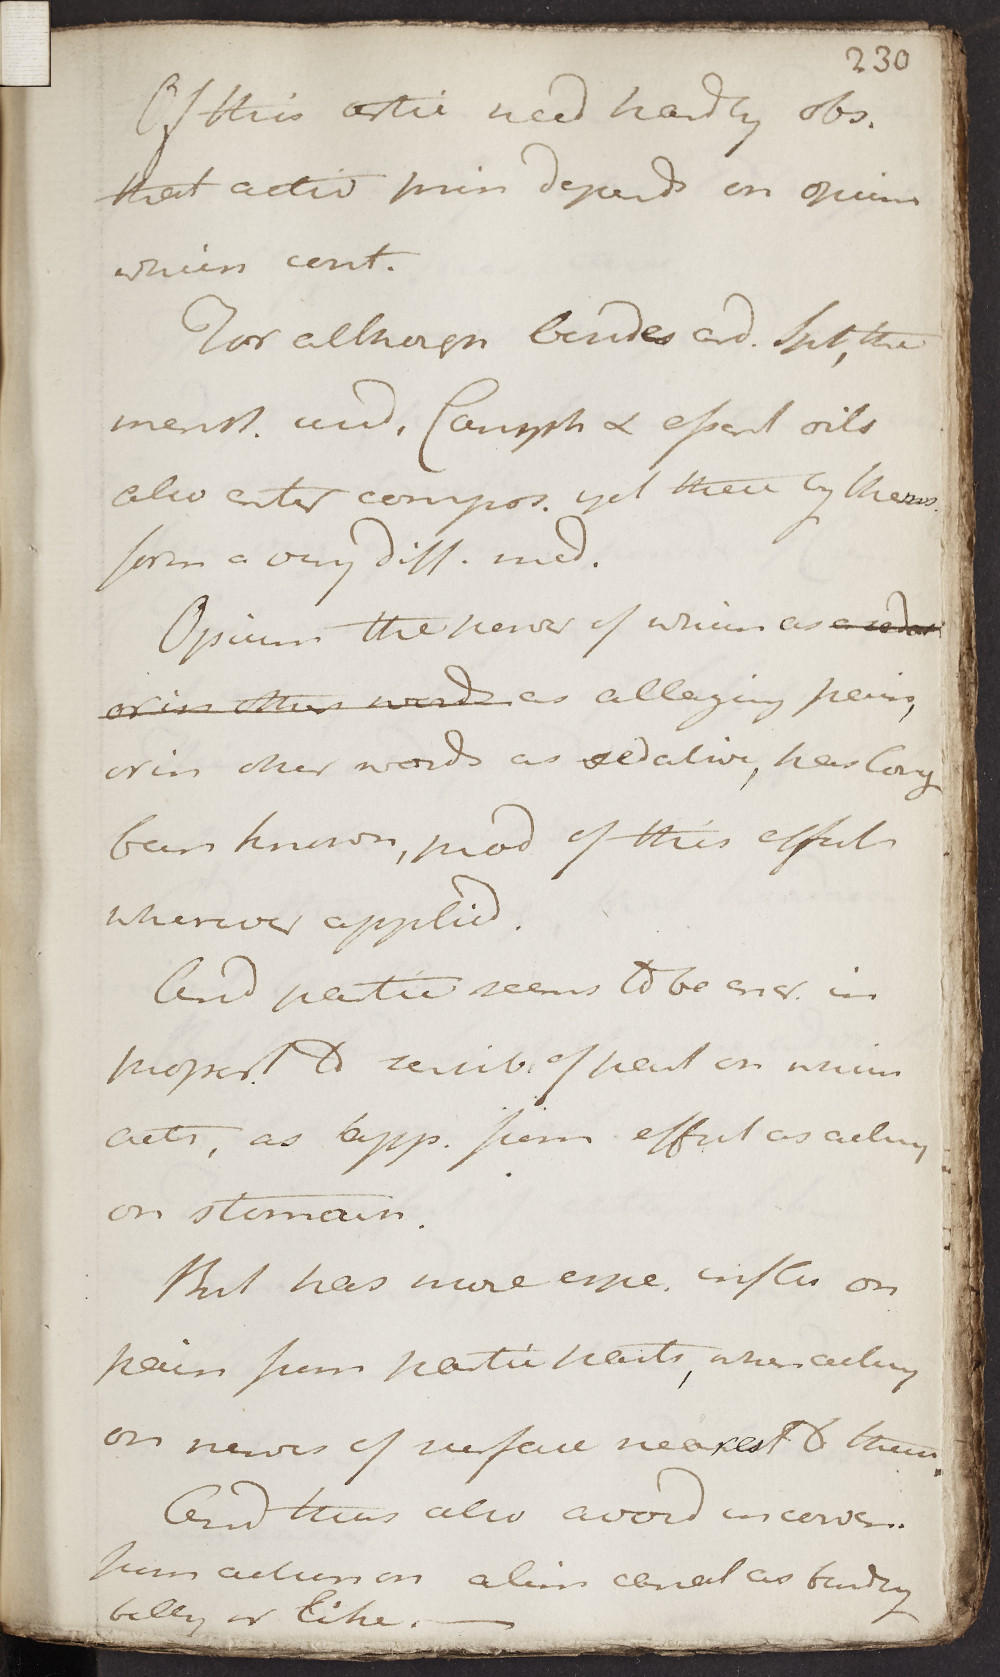 230
Of this artic need hardly obs.
that activ prin depends on opium
which cont.
For although besides ard. Spt, the
menst. used, Camph & essent oils
also enter compos. yet these by thems.
form a very diff. med.
Opium the power of which as a sedat
or in other words as allaying pain,
or in other words as sedative, has long
been known, prod of this effect
wherever applied.
And partic seems to be ener. in
proport to sensib. of part on which
acts, as app. from effect as acting
on stomach.
But has more espe. influ on
pain from partic parts, when acting
on nerves of surface nearest to them.
And thus also avoid inconven.
from action on alim canal as binding
belly or like.